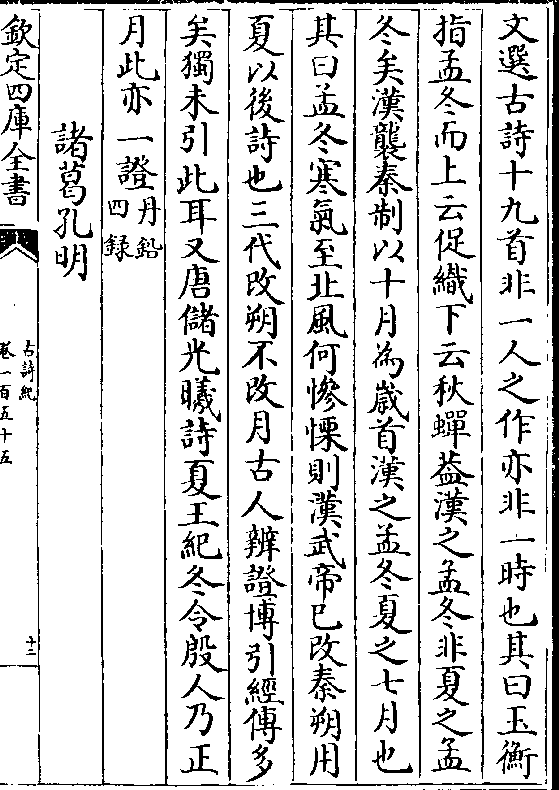 文選古詩十九首非一人之作亦非一時也其曰玉衡
指孟冬而上云促織下云秋蟬葢漢之孟冬非夏之孟
冬矣漢襲秦制以十月為歳首漢之孟冬夏之七月也
其曰孟冬寒氣至北風何慘慄則漢武帝已改秦朔用
夏以後詩也三代改朔不改月古人辨證博引經傳多
矣獨未引此耳又唐儲光曦詩夏王紀冬令殷人乃正
月此亦一證丹鉛四録
諸葛孔明
欽定四庫全書
古詩紀
卷一百五十五
十三